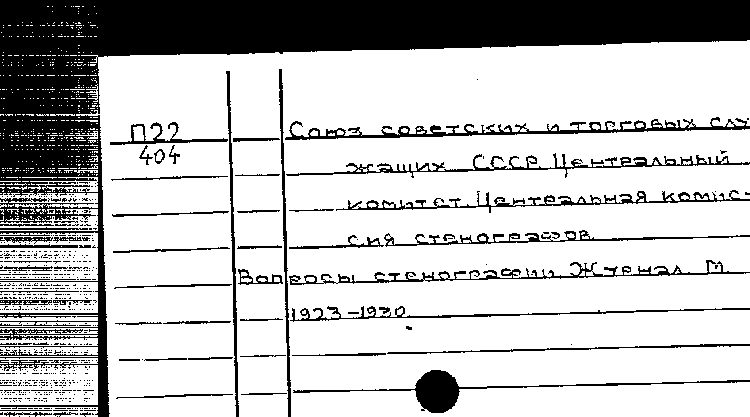 П22
404
Союз советских и торговых слу-
жащих СССР. Центральный
комитет. Центральная комис-
сия стенографов.
Вопросы стенографии. Журнал. М.
1923-1930.